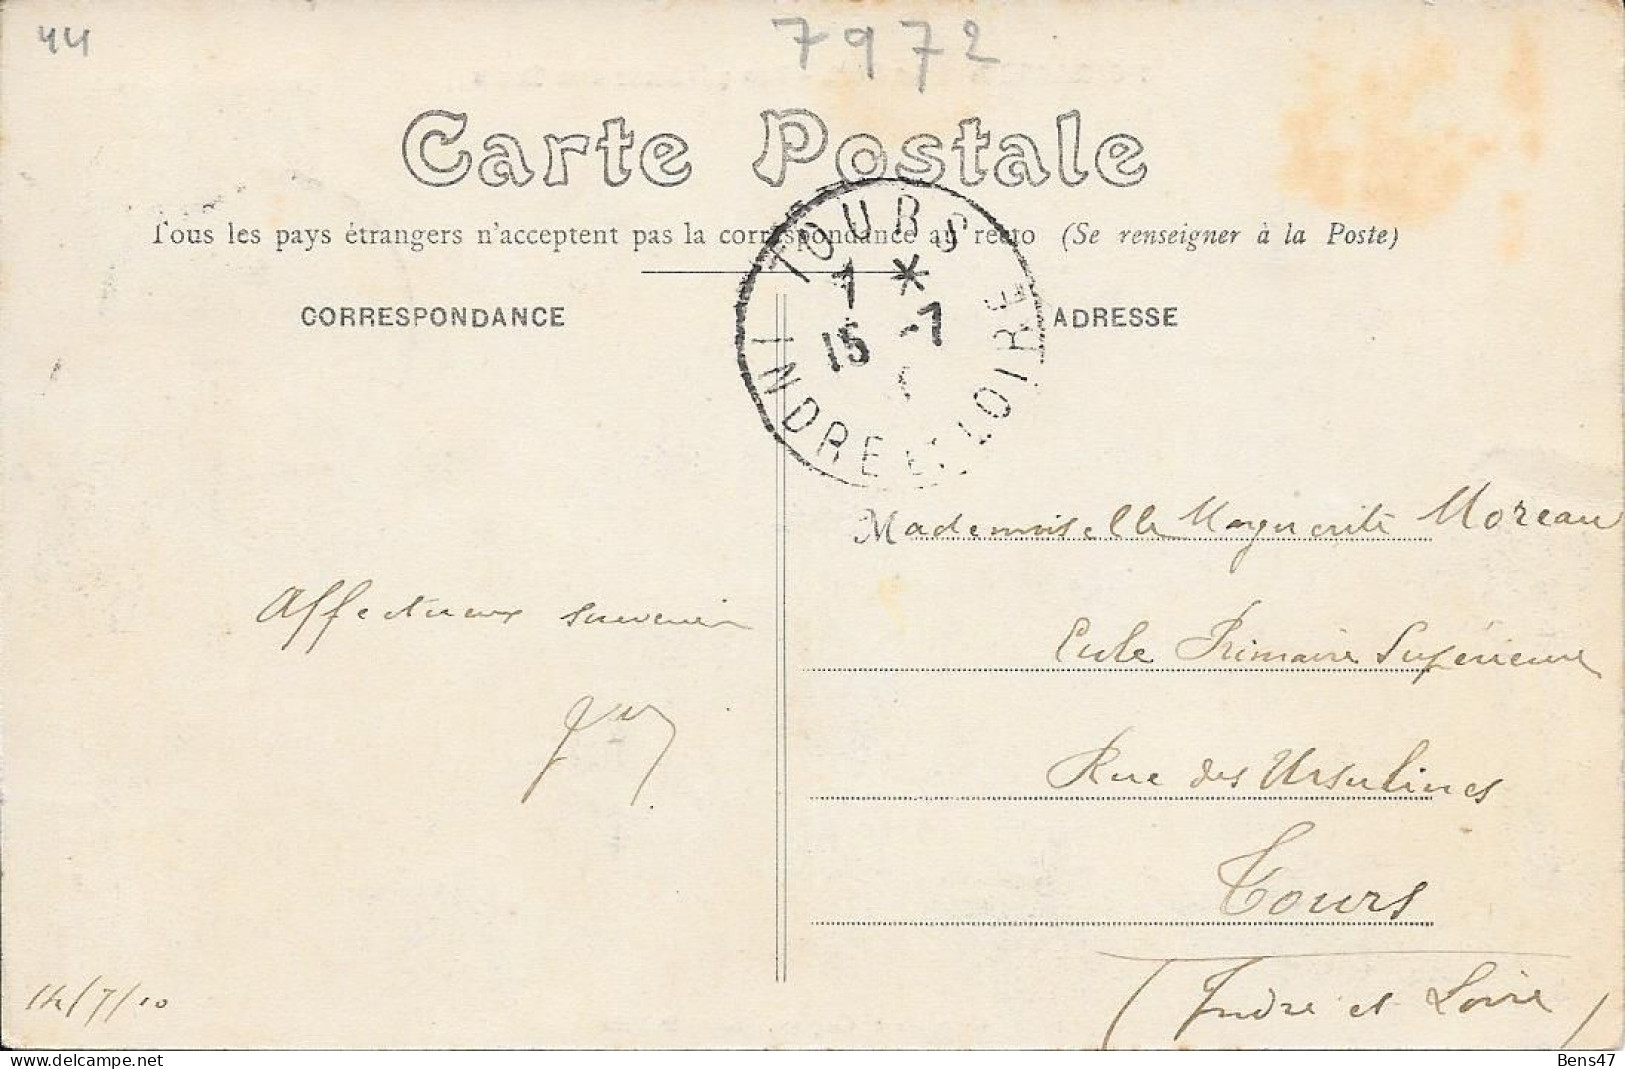 44
7972
Carte Postale
Tous les pays étrangers n'acceptent pas la correspondance au recto (Se renseigner à la Poste)
CORRESPONDANCE
ADRESSE
TOURS
7 *
15 -7
INDRE ET LOIRE
Mademoiselle Marguerite Moreau
Ecole Primaire Supérieure
Rue des Ursulines
Tours
(Indre et Loire)
Affectueux souvenir
14/7/10
Bens47